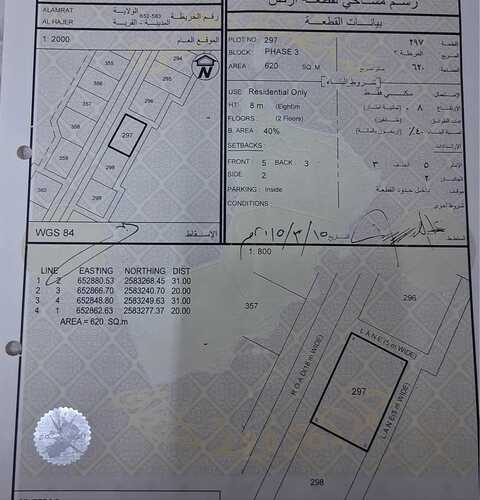 رسم مساحي لقطعة أرض
ALAMRAT
الولاية
652-583
رقم الخريطة
AL HAJER
المدينة - القرية
بيانات القطعة
1: 2000
الموقع العام
PLOT NO: 297
٢٩٧
القطعة
BLOCK: PHASE 3
المرحلة ٣
المربع
AREA: 620 SQ.M
متر مربع
٦٢٠
المساحة
شروط البناء
USE: Residential Only
سكني فقط
الإستعمال
HT: 8 m (Eight)m
٨
الإرتفاع
FLOORS: (2 Floors)
(طابقين)
عدد الطوابق
B. AREA 40%
٤٠٪ (أربعون بالمائة)
نسبة البناء
SETBACKS:
الإرتدادات
FRONT 5 BACK 3
الأمام ٥ الخلف ٣
SIDE 2
الجانبين ٢
PARKING: Inside
داخل حدود القطعة
موقف
CONDITIONS:
شروط أخرى
WGS 84
الإسقاط
التاريخ
المخطط
294
295
296
297
298
299
360
357
1: 800
LINE EASTING NORTHING DIST
1 2 652880.53 2583268.45 31.00
2 3 652866.70 2583240.70 20.00
3 4 652848.80 2583249.63 31.00
4 1 652862.63 2583277.37 20.00
AREA = 620 SQ.m
357
296
LANE (5 m WIDE)
ROAD (18 m WIDE)
297
298